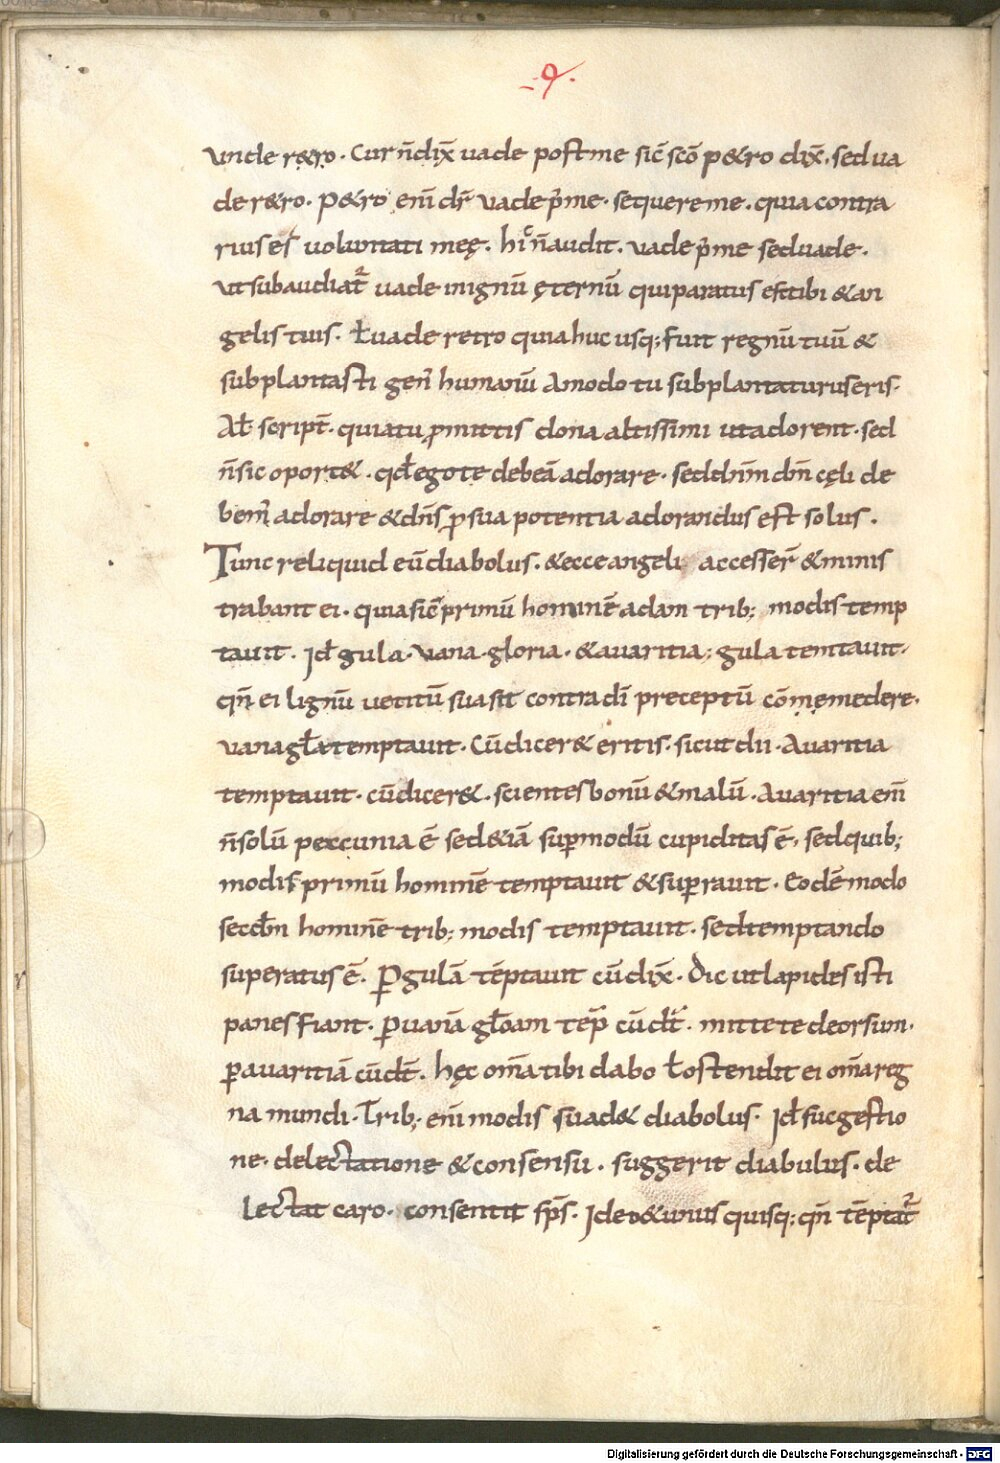 ·9·
unde r&ro. Cur n̄ dix̄ uade post me sic̄ sc̄o p&ro dix̄. sed ua
de r&ro. P&ro enī dr̄ uade p̄ me. sequere me. quia contra
rius es uoluntati meę. hic n̄ audit. uade p̄ me sed uade.
ut subaudiat᷑ uade in ignū ęternū qui paratus est tibi & an
gelis tuis. ł uade retro quia huc usq; fuit regnū tuū &
subplantasti gen̄ humanū Amodo tu subplantaturus eris.
Ał script̄. quia tu ꝓmittis dona altissimi ut adorent. sed
n̄ sic oport&. qđ ego te debeā adorare. sed dn̄m dn̄ cęli de
bem̄ adorare & dn̄s ꝓ sua potentia adorandus est solus.
Tunc reliquid eū diabolus. & ecce angeli accesser̄ & minis
trabant ei. quia sic̄ primū hominē adam trib; modis temp
tauit. Id̄ gula. Vana gloria. & auaritia; gula temtauit.
qn̄ ei lignū uetitū suasit contra dī preceptū cōmemedere.
vana gła temptauit. Cū dicer& eritis. sicut dii. Auaritia
temptauit. cū dicer&. scientes bonū & malū. Auaritia enī
n̄ solū peccunia ē sed &iā suꝑmodū cupiditas ē. sed quib;
modis primū hominē temptauit & suꝑauit. Eodē modo
secđm hominē trib; modis temptauit. sed temptando
superatus ē. P gulā tēptauit cū dix̄. Dic ut lapides isti
panes fiant. P uanā głoam tep̄ cū dc̄t. mitte te deorsum.
ꝑ auaritiā cū dc̄t. hęc om̄a tibi dabo ł ostendit ei om̄a reg
na mundi. Trib; enī modis suad& diabolus. Id̄ sucgestio
ne. delectatione & consensu. suggerit diabulus. de
lectat caro. consentit sps̄. Ideo & unus quisq; qn̄ tēptat᷑
Digitalisierung gefördert durch die Deutsche Forschungsgemeinschaft - DFG